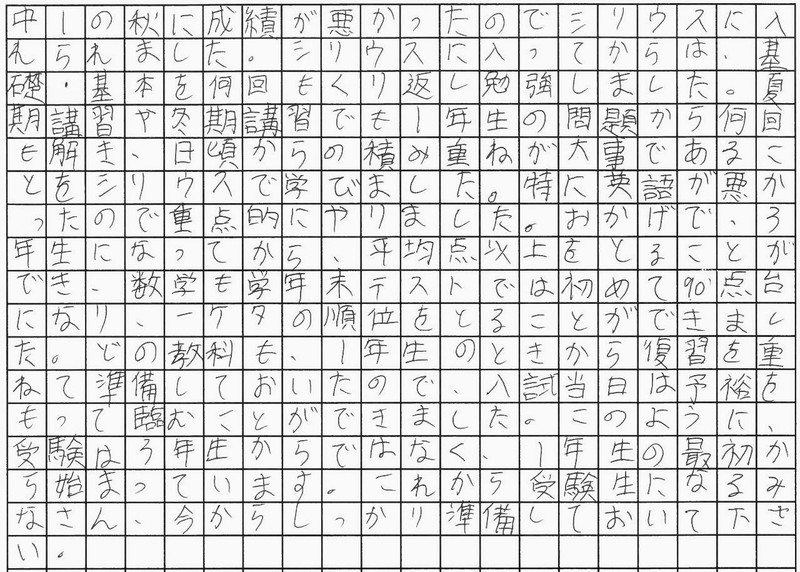 中一の秋に成績が悪かったのでシリウスに入
れられました。シリウスに入ってからは、基
礎・基本を何回もくり返し勉強しました。夏
期講習や冬期講習でも1年生の問題から何回
も解き、日頃からの積み重ねが大事であるこ
とをシリウスで学びました。特に英語が悪か
ったので重点的にやりました。おかげで、3
年生になってから、平均点以上をとることが
でき、数学も学年末テストでは初めて90点台
になり、一ケタの順位をとることができまし
た。どの教科も、1年生のときから復習を重
ねて準備しておいたので、入試当日は予裕を
もって臨むことができました。このように、
受験は3年生からではなく、1年生の最初か
ら始まっています。これから受験生になるみ
なさん、今からしっかり準備しておいて下さ
い。